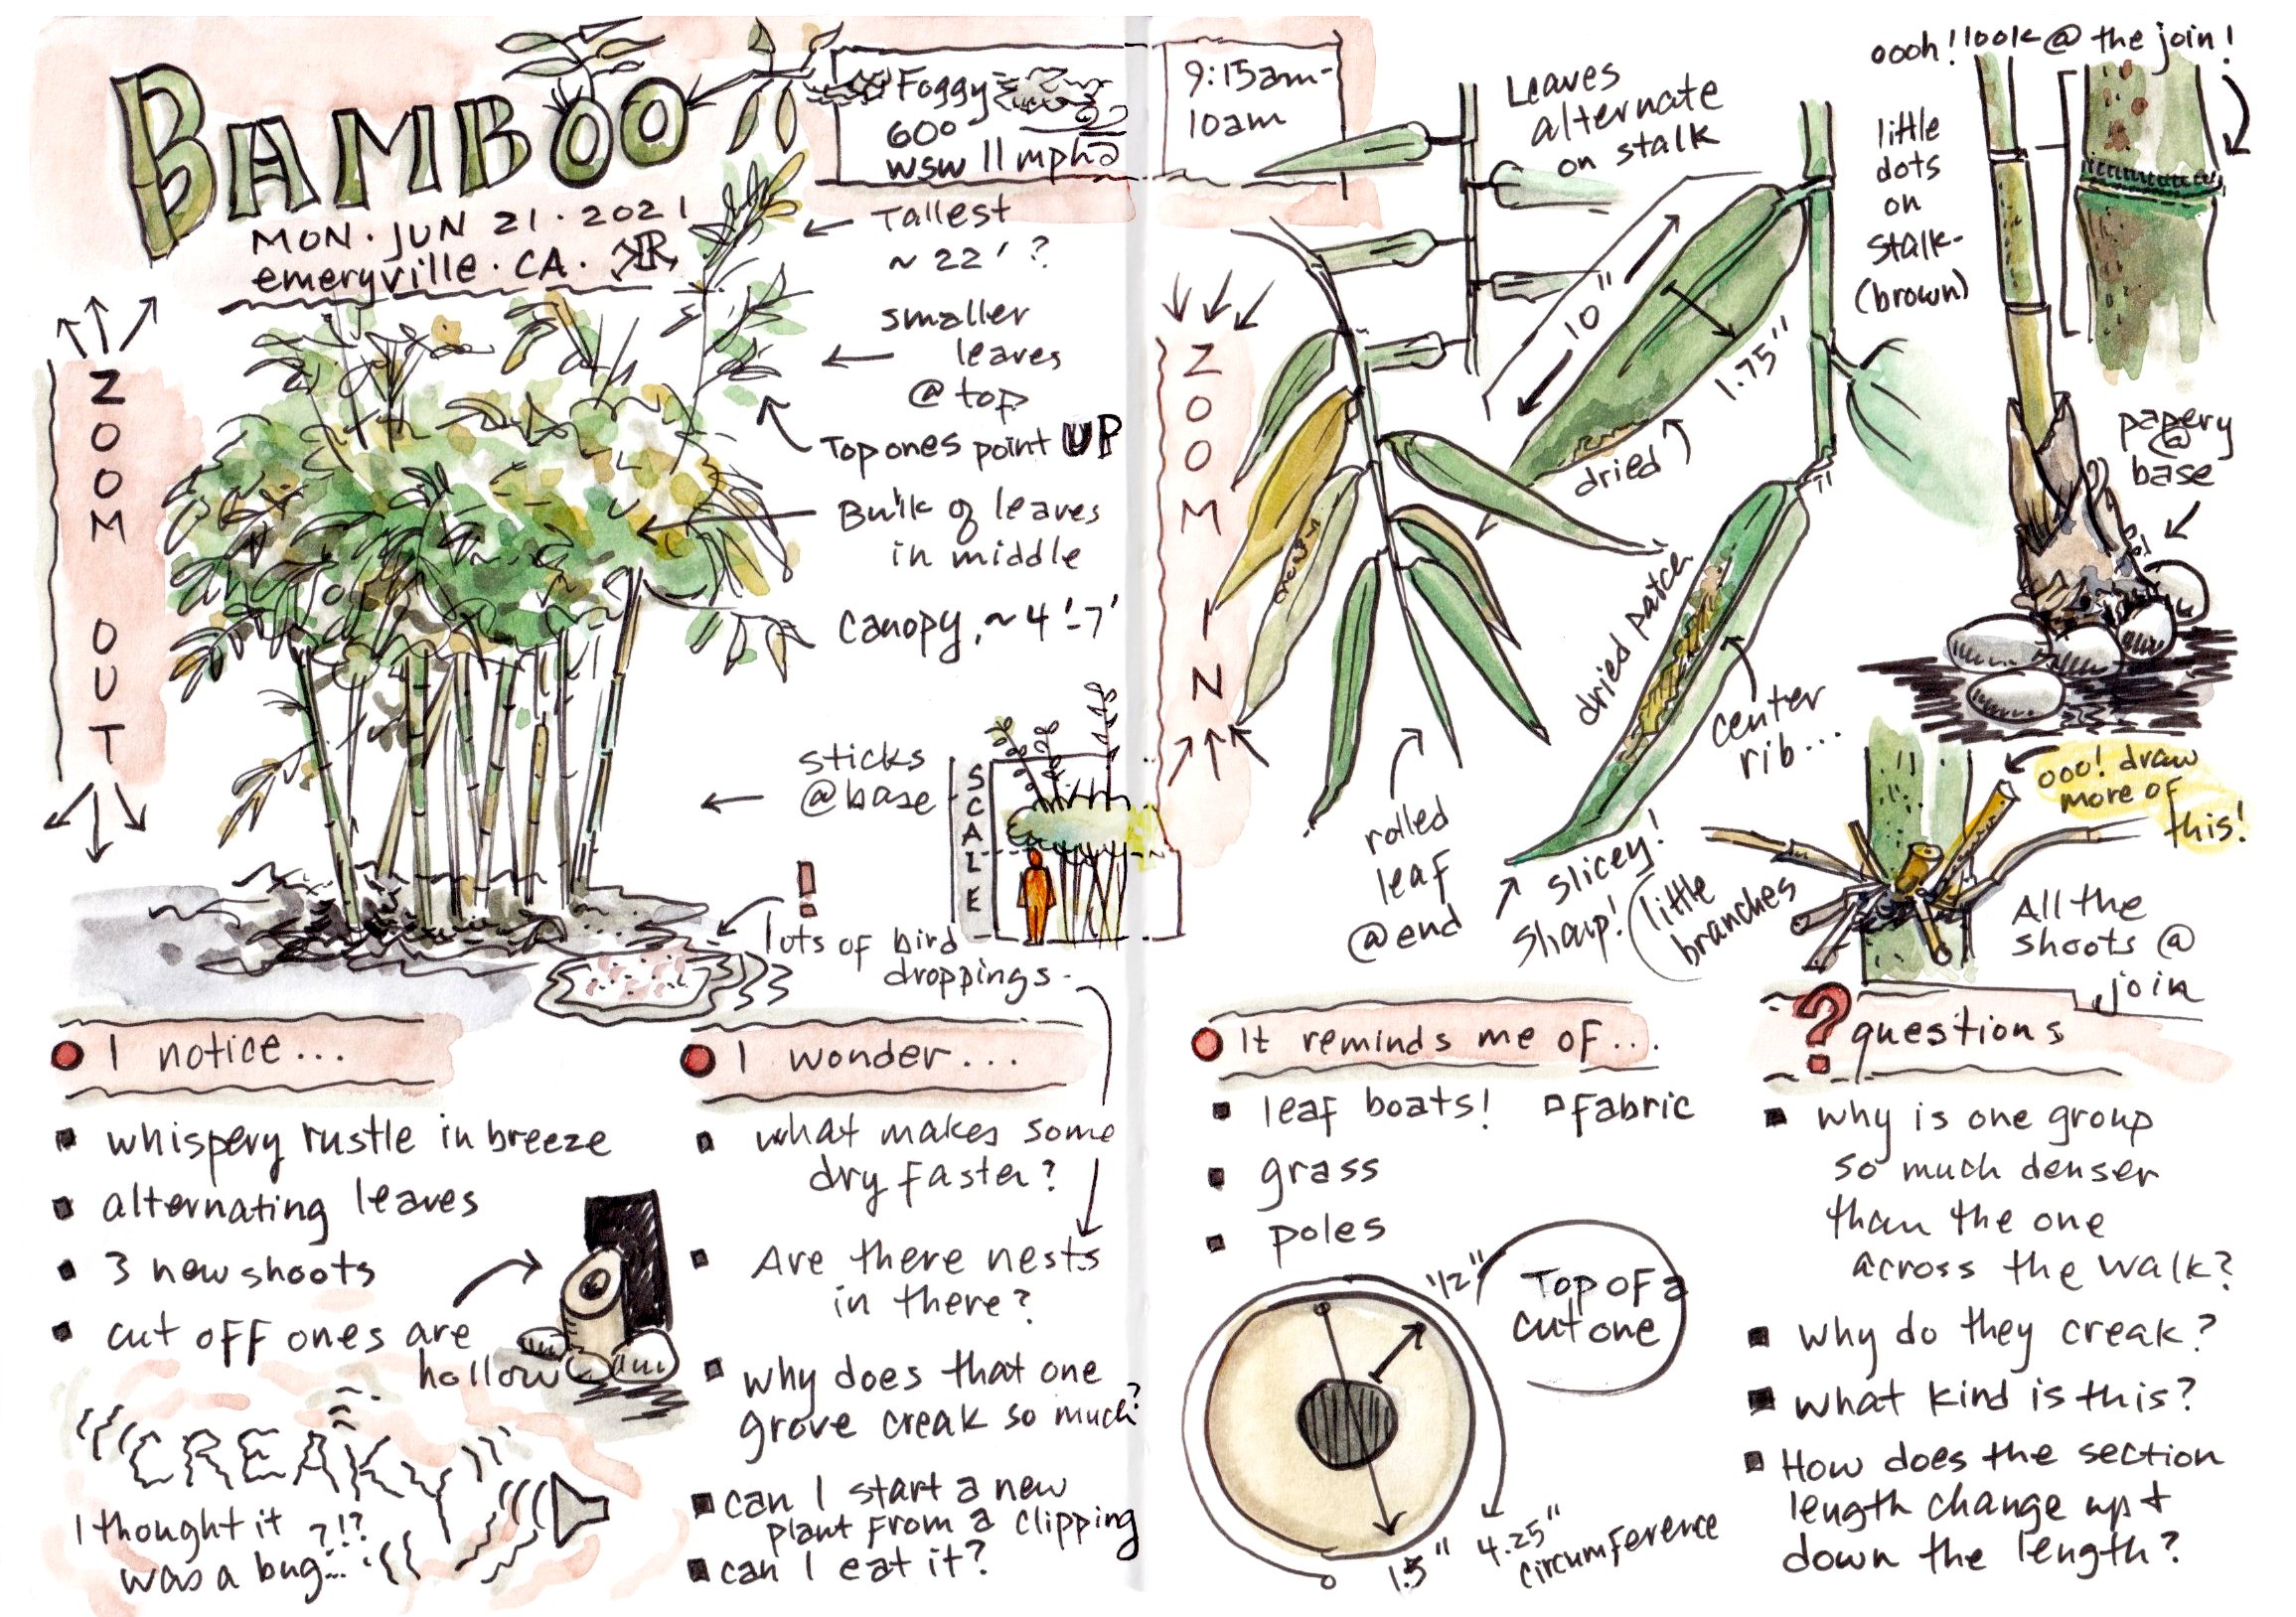 BAMBOO
MON. JUN 21. 2021
emeryville. CA.
Foggy
60°
WSW 11 mph
9:15am-
10am
ZOOM OUT
Tallest
~ 22' ?
smaller
leaves
@ top
Top ones point UP
Bulk of leaves
in middle
Canopy, ~ 4'-7'
sticks
@ base
SCALE
!
lots of bird
droppings
ZOOM IN
Leaves
alternate
on stalk
10"
1.75"
dried
dried patch
center
rib...
rolled
leaf
@ end
slicey!
sharp!
oooh! look @ the join!
little
dots
on
stalk-
(brown)
papery
@
base
ooo! draw
more of
this!
little
branches
All the
shoots @
join
I notice...
whispery rustle in breeze
alternating leaves
3 new shoots
cut off ones are
hollow
"CREAKY"
I thought it
was a bug... ?!?
I wonder...
what makes some
dry faster?
Are there nests
in there?
why does that one
grove creak so much?
can I start a new
plant from a clipping
can I eat it?
It reminds me of...
leaf boats!
fabric
grass
poles
1/2"
Top of a
cut one
1.5"
4.25"
circumference
? questions
why is one group
so much denser
than the one
across the walk?
why do they creak?
what kind is this?
How does the section
length change up +
down the length?